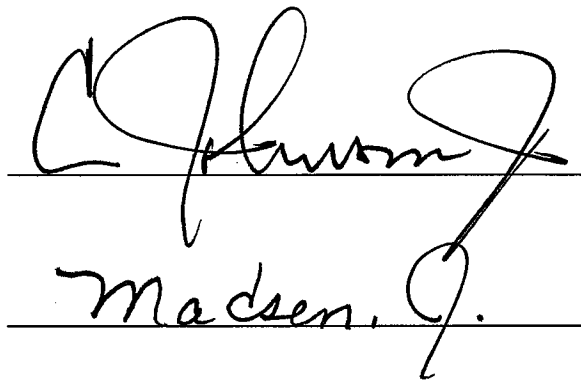 C Johnson J
Madsen, J.